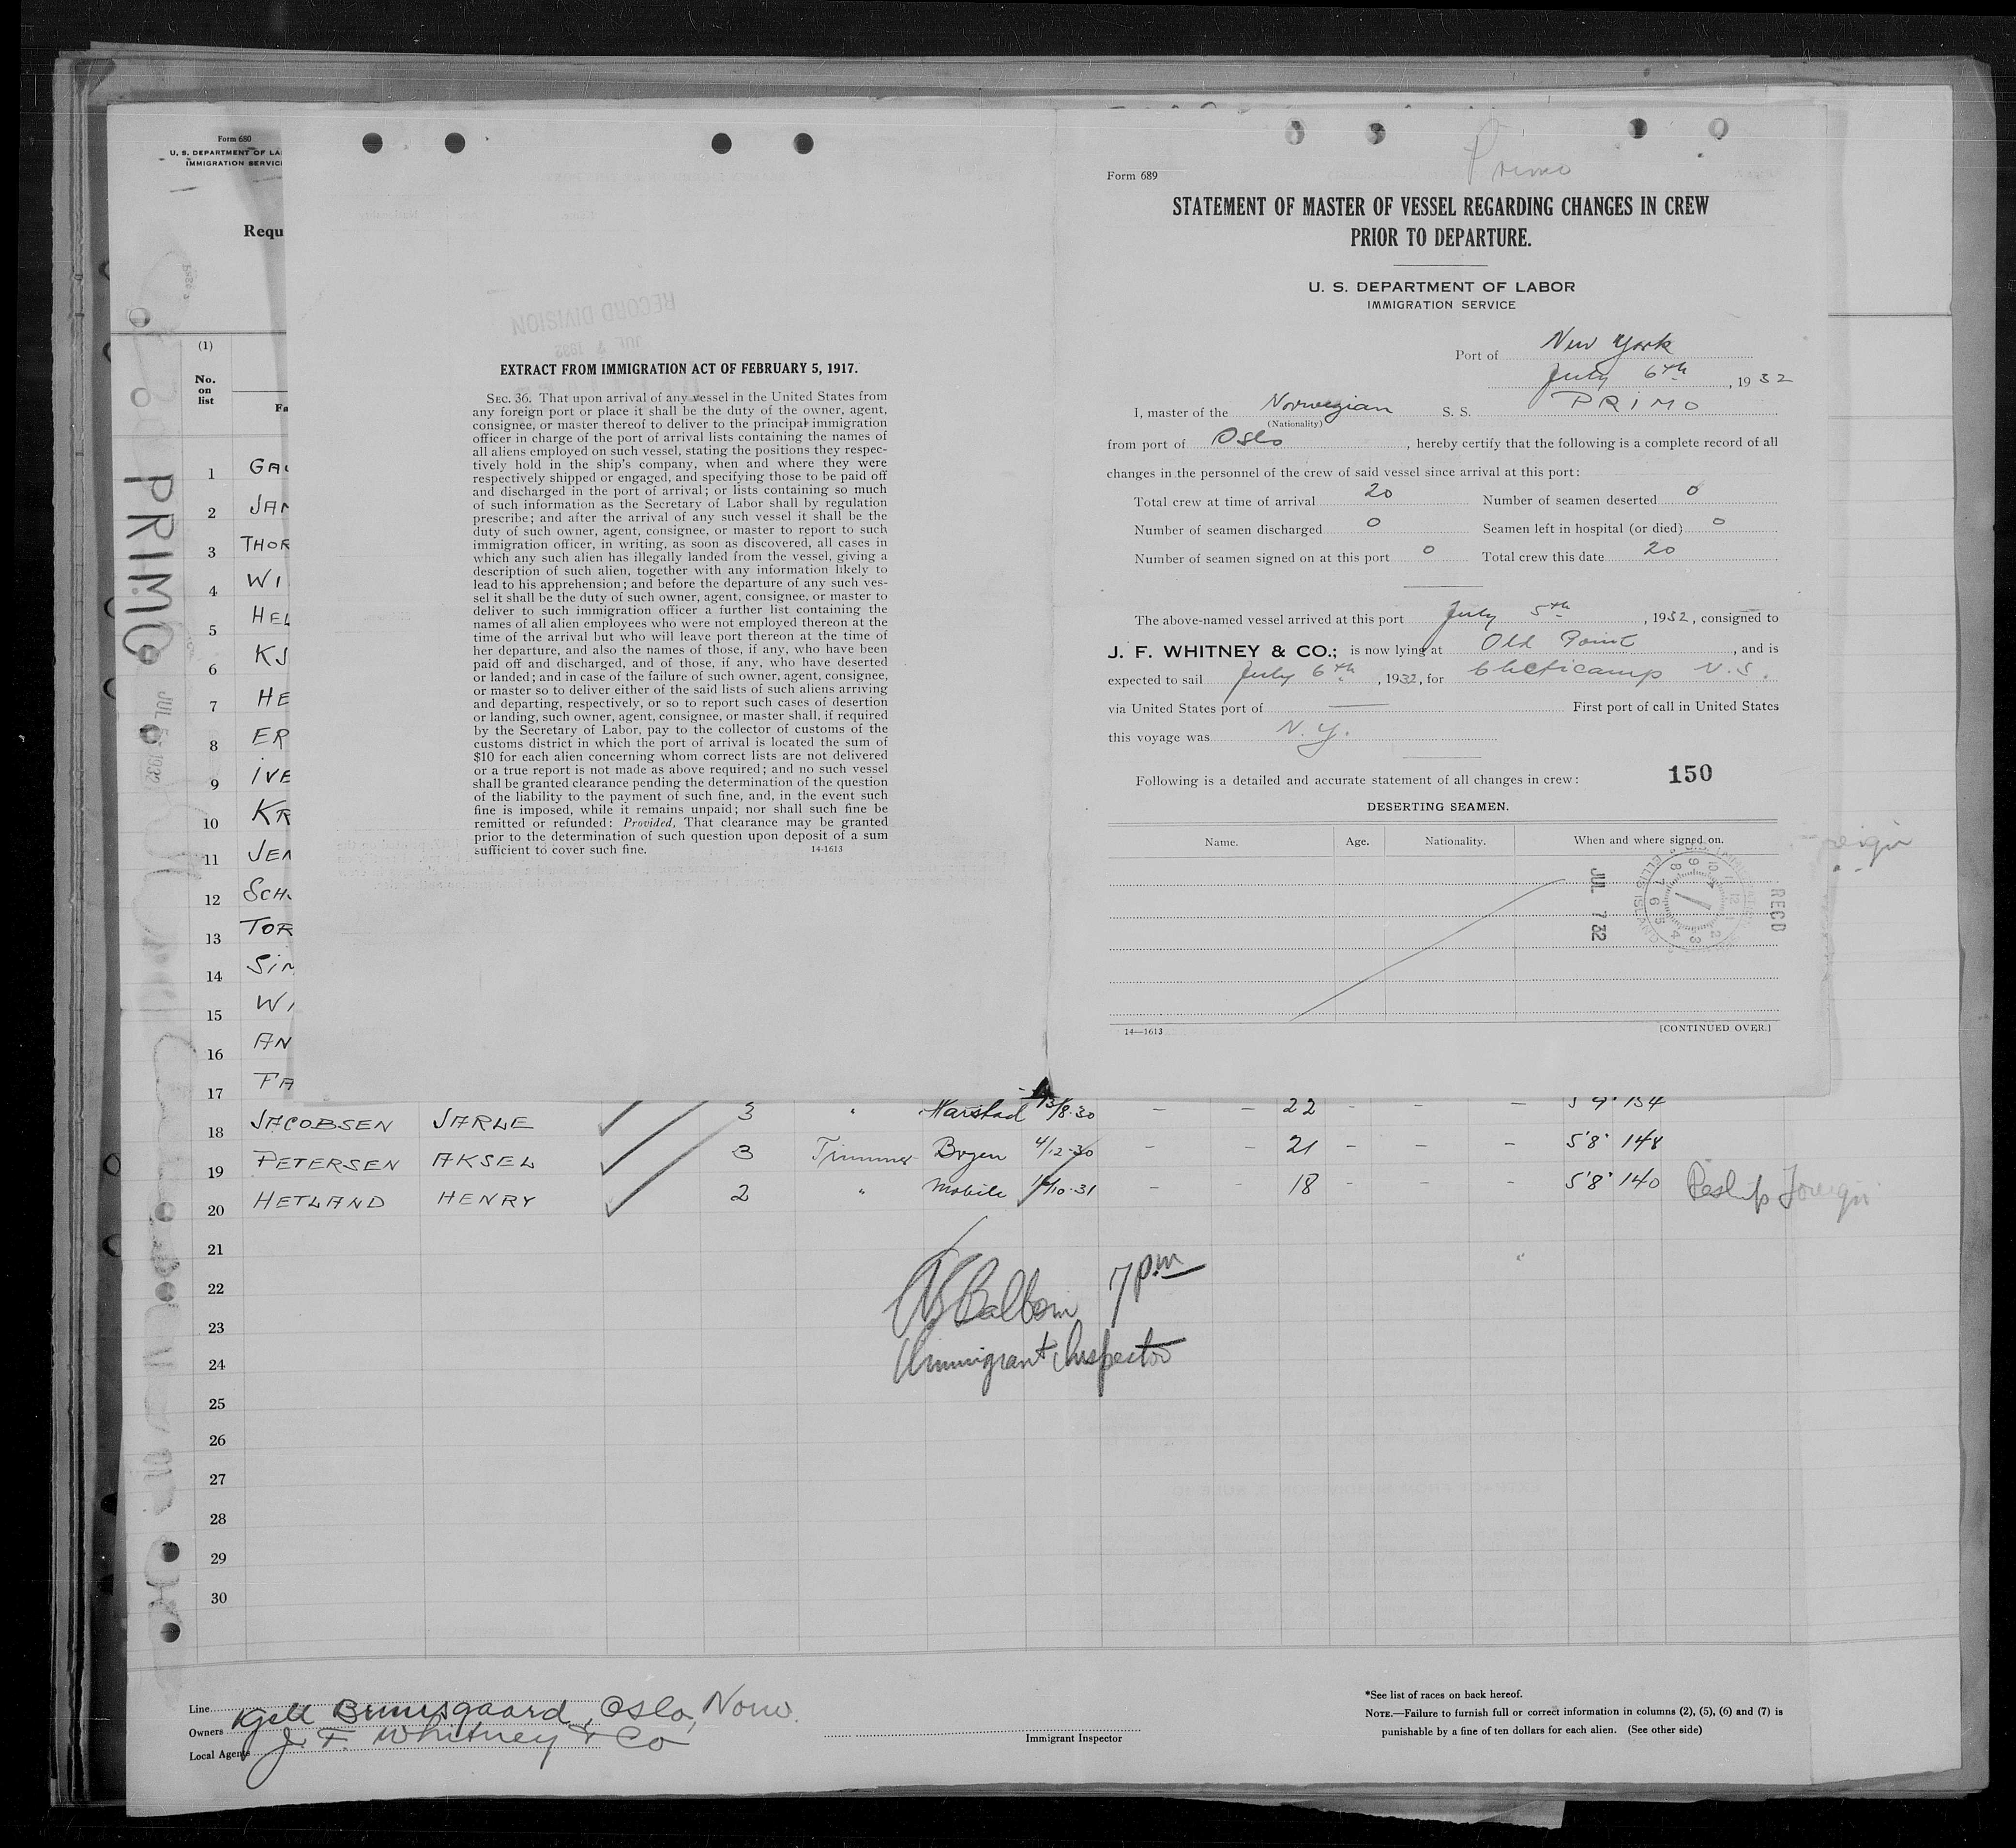 Form 680
U. S. DEPARTMENT OF LA
IMMIGRATION SERVIC
Requ
(1)
No.
on
list
Fa
1 GAU
2 JAN
3 THOR
4 WI
5 HEL
6 KJ
7 HE
8 ER
9 IVE
10 KR
11 JEN
12 SCH
13 TOR
14 SIM
15 WI
16 AN
17 FA
PRIMO
JUL 5 1932
RECORD DIVISION
JUL 7 1932
EXTRACT FROM IMMIGRATION ACT OF FEBRUARY 5, 1917.
SEC. 36. That upon arrival of any vessel in the United States from
any foreign port or place it shall be the duty of the owner, agent,
consignee, or master thereof to deliver to the principal immigration
officer in charge of the port of arrival lists containing the names of
all aliens employed on such vessel, stating the positions they respec-
tively hold in the ship's company, when and where they were
respectively shipped or engaged, and specifying those to be paid off
and discharged in the port of arrival; or lists containing so much
of such information as the Secretary of Labor shall by regulation
prescribe; and after the arrival of any such vessel it shall be the
duty of such owner, agent, consignee, or master to report to such
immigration officer, in writing, as soon as discovered, all cases in
which any such alien has illegally landed from the vessel, giving a
description of such alien, together with any information likely to
lead to his apprehension; and before the departure of any such ves-
sel it shall be the duty of such owner, agent, consignee, or master to
deliver to such immigration officer a further list containing the
names of all alien employees who were not employed thereon at the
time of the arrival but who will leave port thereon at the time of
her departure, and also the names of those, if any, who have been
paid off and discharged, and of those, if any, who have deserted
or landed; and in case of the failure of such owner, agent, consignee,
or master so to deliver either of the said lists of such aliens arriving
and departing, respectively, or so to report such cases of desertion
or landing, such owner, agent, consignee, or master shall, if required
by the Secretary of Labor, pay to the collector of customs of the
customs district in which the port of arrival is located the sum of
$10 for each alien concerning whom correct lists are not delivered
or a true report is not made as above required; and no such vessel
shall be granted clearance pending the determination of the question
of the liability to the payment of such fine, and, in the event such
fine is imposed, while it remains unpaid; nor shall such fine be
remitted or refunded: Provided, That clearance may be granted
prior to the determination of such question upon deposit of a sum
sufficient to cover such fine. 14-1613
Primo
Form 689
STATEMENT OF MASTER OF VESSEL REGARDING CHANGES IN CREW
PRIOR TO DEPARTURE.
U. S. DEPARTMENT OF LABOR
IMMIGRATION SERVICE
Port of New York
July 6th, 1932
I, master of the Norwegian S. S. PRIMO
(Nationality)
from port of Oslo, hereby certify that the following is a complete record of all
changes in the personnel of the crew of said vessel since arrival at this port:
Total crew at time of arrival 20 Number of seamen deserted 0
Number of seamen discharged 0 Seamen left in hospital (or died) 0
Number of seamen signed on at this port 0 Total crew this date 20
The above-named vessel arrived at this port July 5th, 1932, consigned to
J. F. WHITNEY & CO.; is now lying at Old Point, and is
expected to sail July 6th, 1932, for Cheticamp N.S.
via United States port of — First port of call in United States
this voyage was N.Y.
Following is a detailed and accurate statement of all changes in crew: 150
DESERTING SEAMEN.
Name. Age. Nationality. When and where signed on.
REC'D
JUL 7 32
ELLIS ISLAND
14—1613 [CONTINUED OVER.]
18 JACOBSEN JARLE 3 " Harstad 13/8-30 - - 22 - - - 5'9" 154
19 PETERSEN AKSEL 3 Trimmer 4/12-30 - - 21 - - - 5'8" 148
20 HETLAND HENRY 2 " Mobile 10-31 - - 18 - - - 5'8" 140 Reship Foreign
21
22
23
24
25
26
27
28
29
30
7 pm
Immigrant Inspector
Line
Owners Kjell , Oslo, Norw.
Local Agents J. F. Whitney & Co
Immigrant Inspector
*See list of races on back hereof.
NOTE.—Failure to furnish full or correct information in columns (2), (5), (6) and (7) is
punishable by a fine of ten dollars for each alien. (See other side)